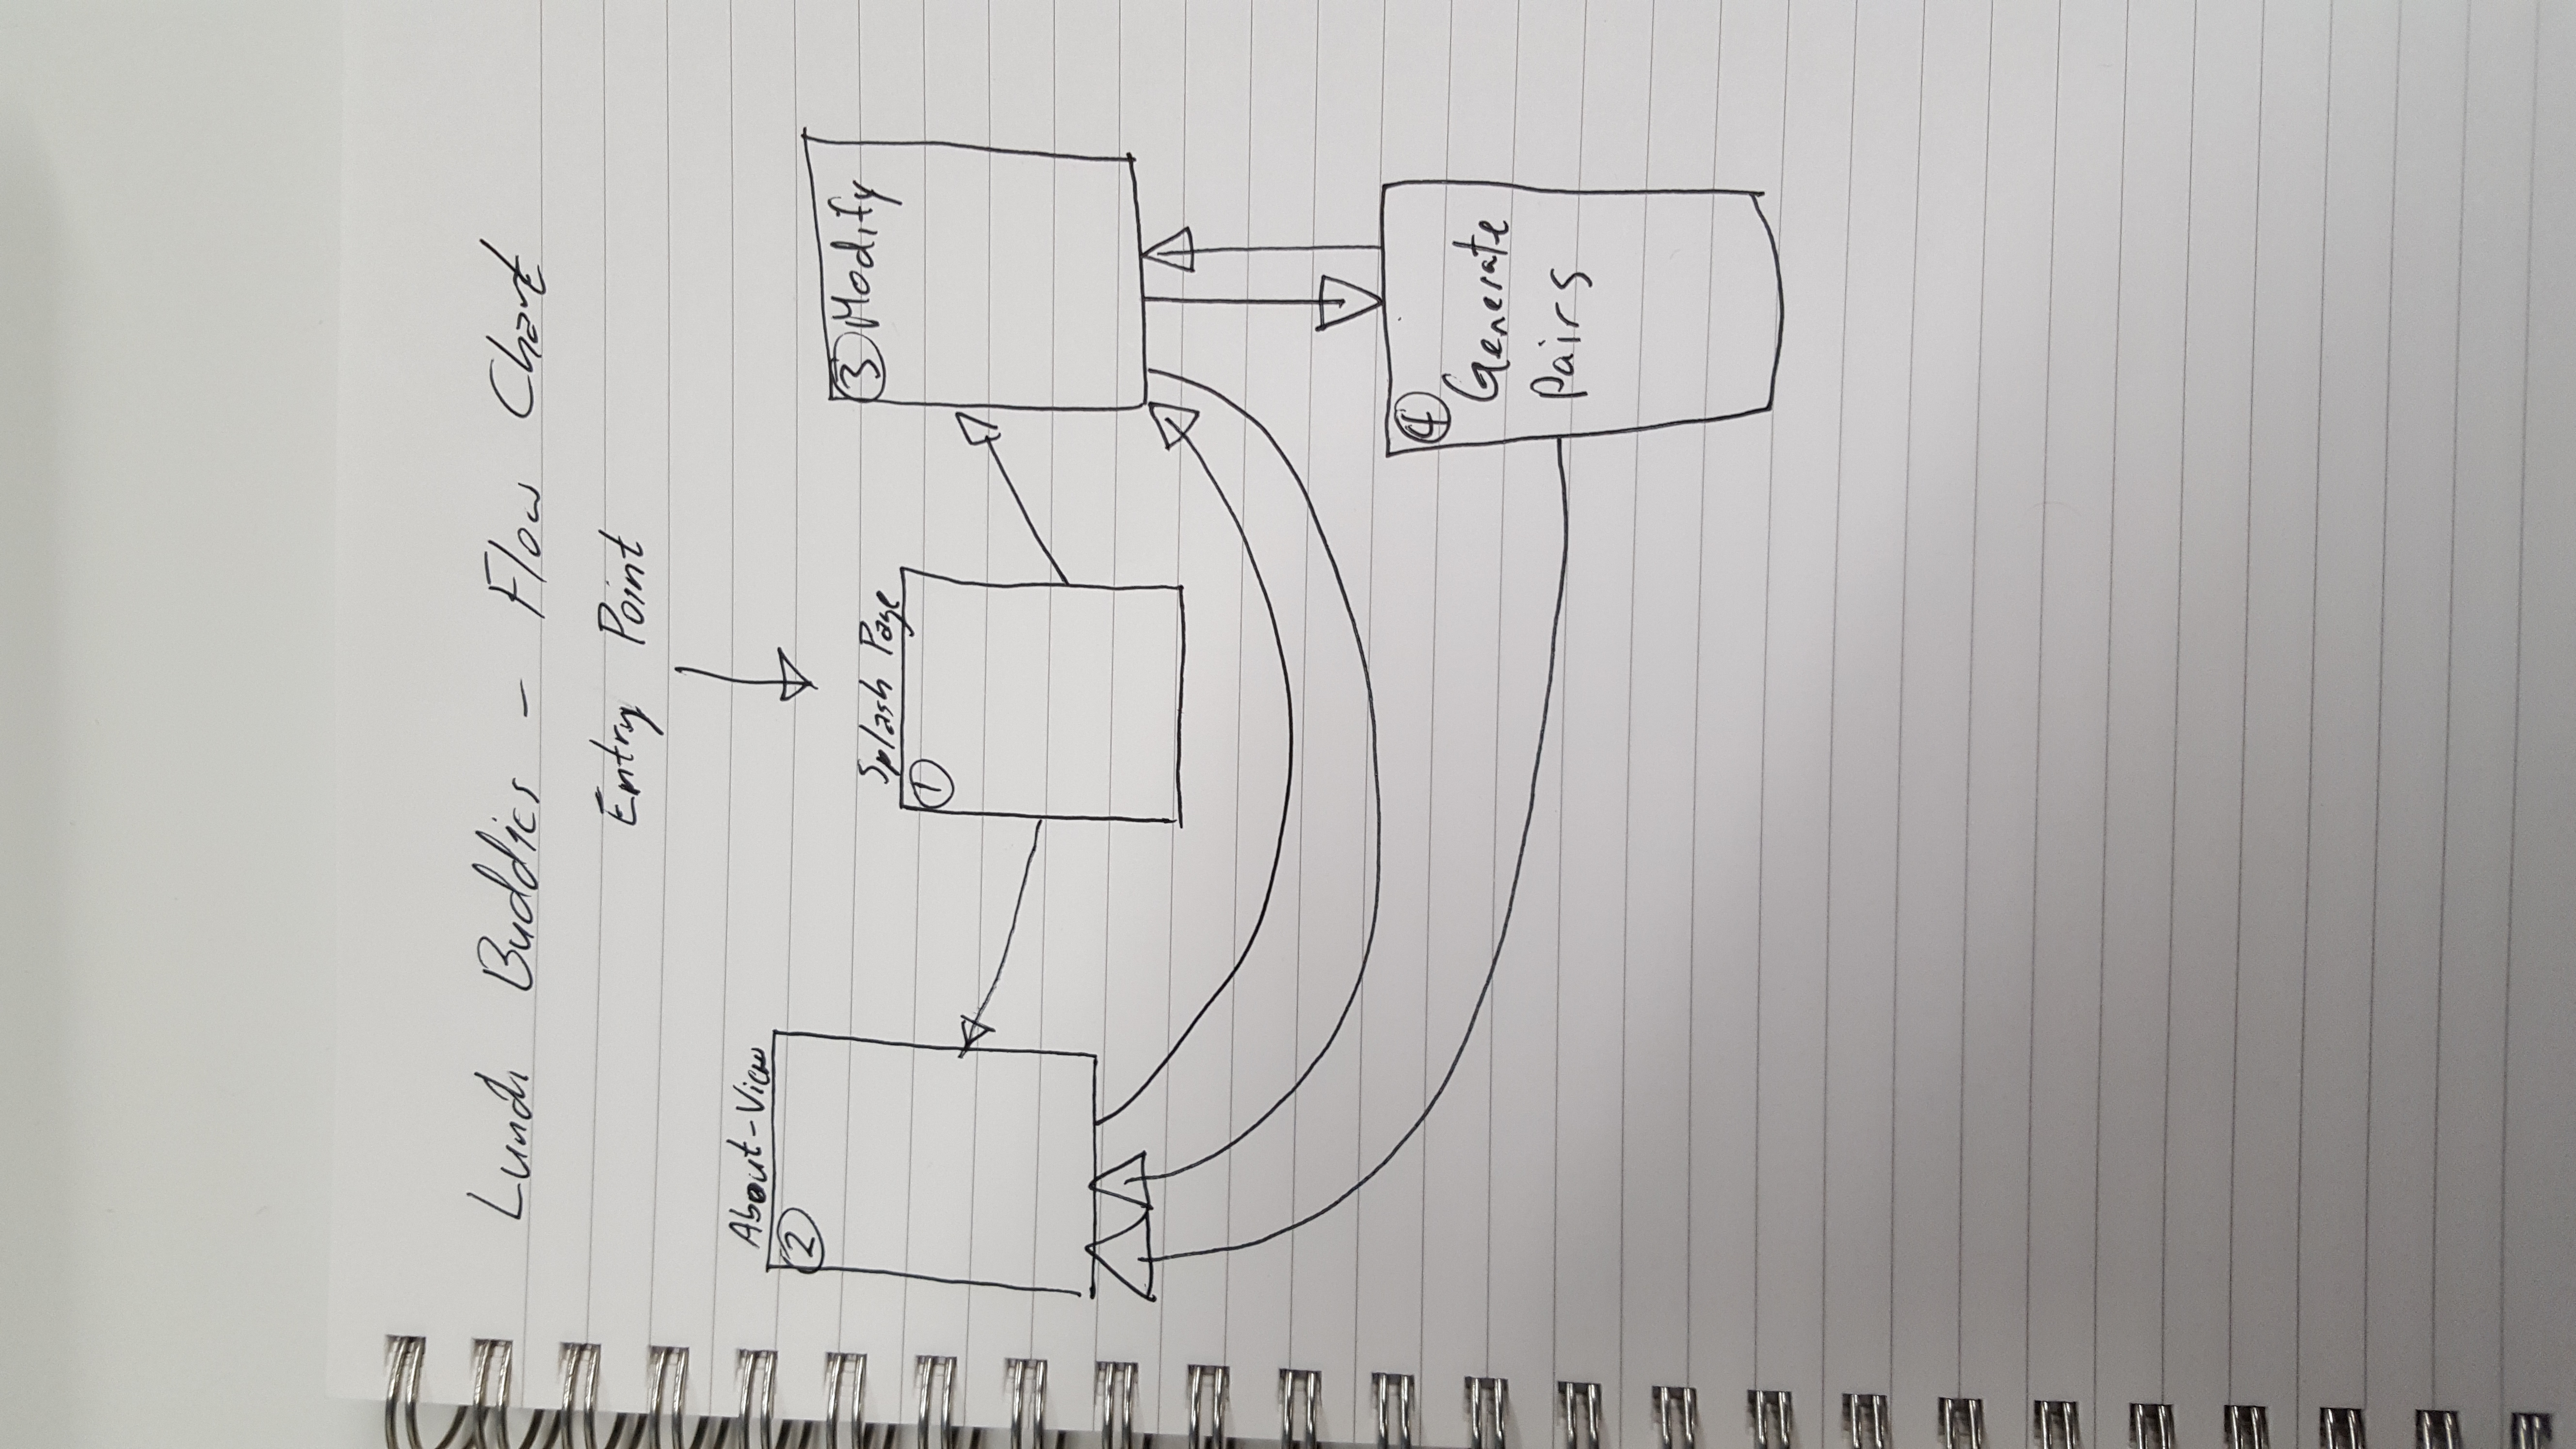 Lunch Buddies - Flow Chart
Entry Point
About-View
2
Splash Page
1
3 Modify
4
Generate
Pairs